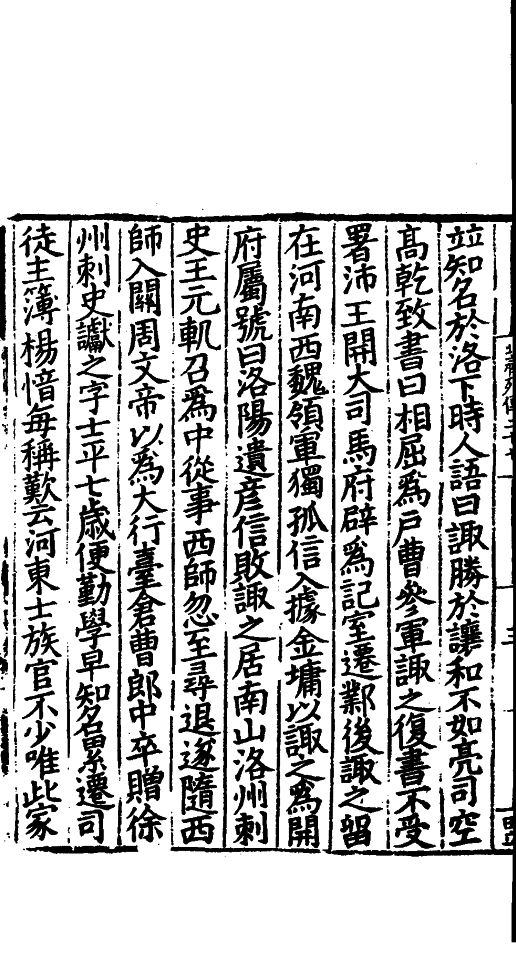 竝知名於洛下時人語曰諏勝於讓和不如亮司空
高乾致書曰相屈爲戸曹參軍諏之復書不受
署沛王開大司馬府辟爲記室遷鄴後諏之留
在河南西魏領軍獨孤信入據金墉以諏之爲開
府屬號曰洛陽遺彦信敗諏之居南山洛州刺
史王元軌召爲中從事西師忽至尋退遂隨西
師入關周文帝以爲大行臺倉曹郎中卒贈徐
州刺史讞之字士平七歲便勤學早知名累遷司
徒主簿楊愔每稱歎云河東士族官不少唯此家